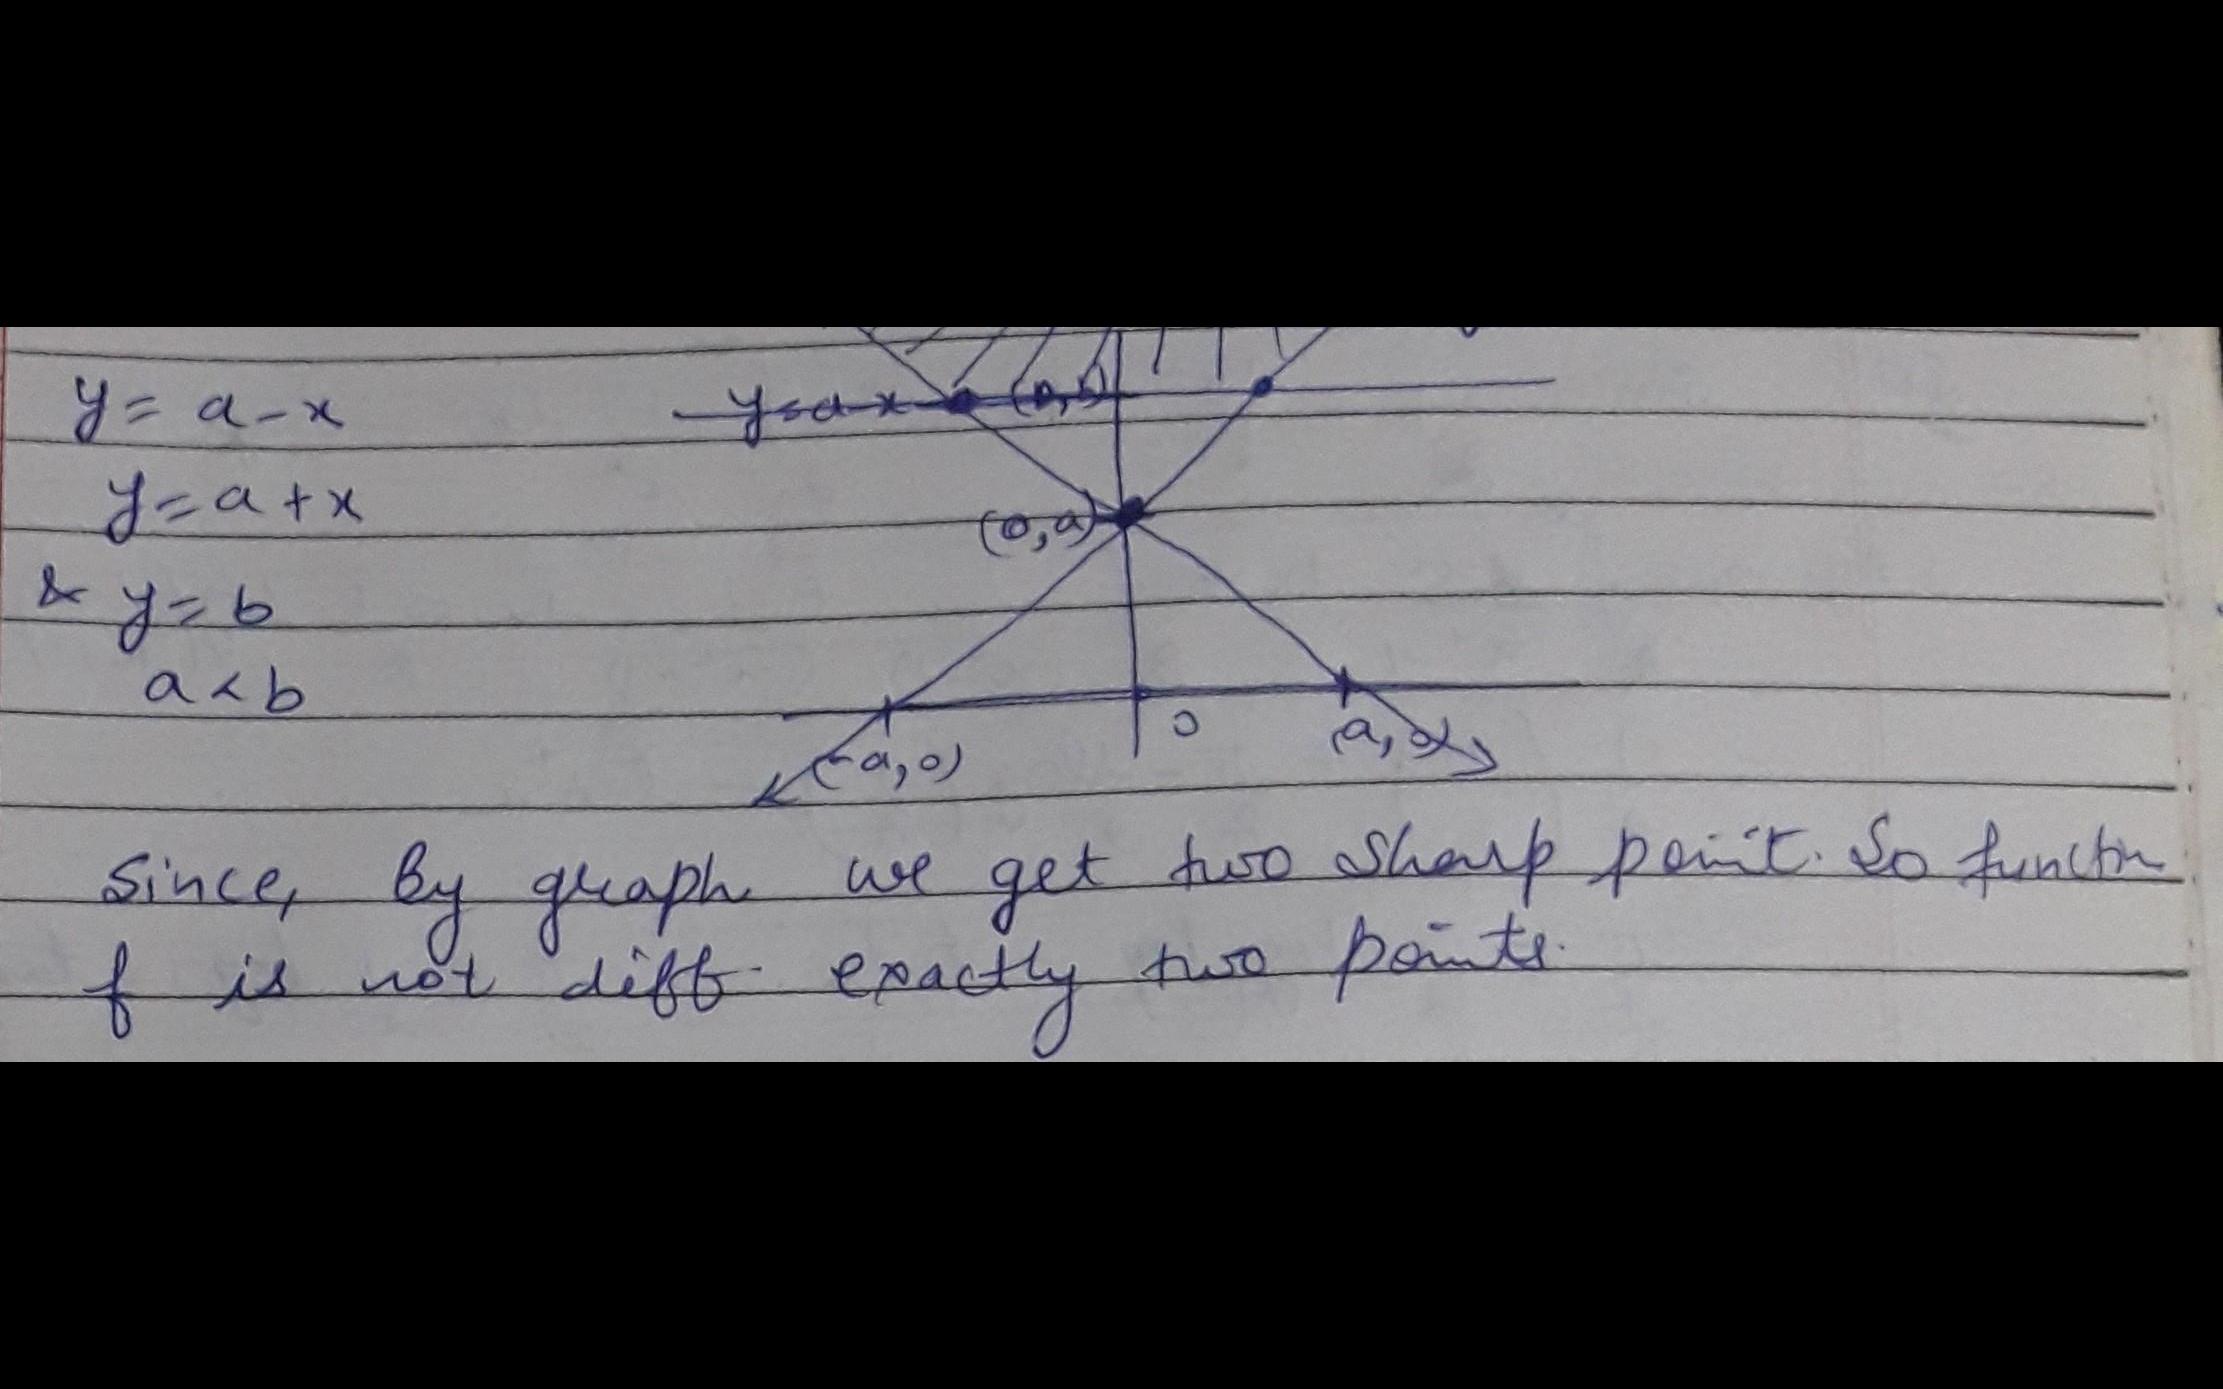 y = a - x
y = a - x
(0,b)
y = a + x
(0,a)
& y = b
a < b
(-a,0)
0
(a,0)
Since, By graph we get two sharp point. So functn
f is not diff. exactly two points.